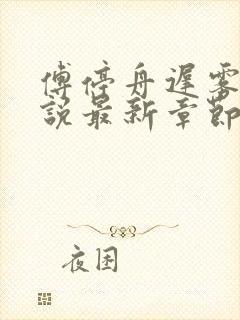 傅停舟遲雾
説最新章節
夜困